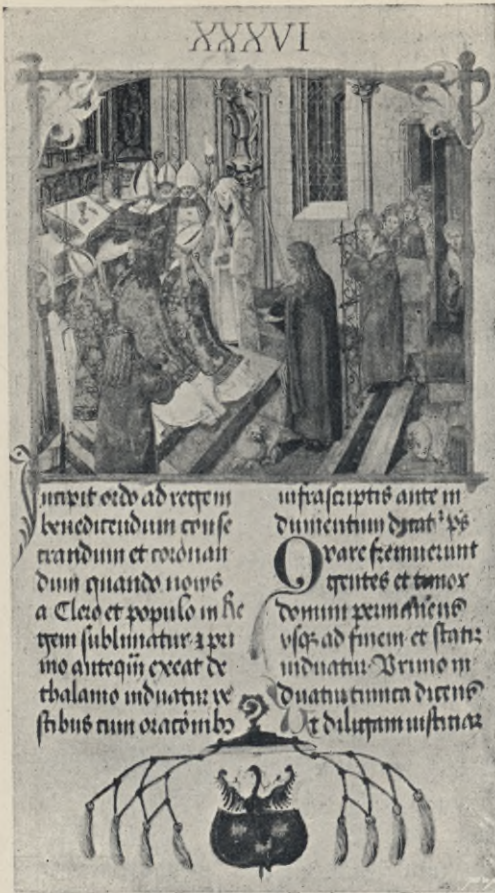 XXXVI
Incipit ordo ad regem
benedicendum conse
crandum et coronan
dum quando novus
a Clero et populo in Re
gem sublimatur ⁊ pri
mo anteqm̄ exeat de
thalamo induatur ve
stibus cum oracōnibꝫ
infrascriptis ante in
dumentum ps
Quare fremuerunt
gentes et timor
domini permanens
vsqꝫ ad finem et statiȝ
induatur Primo in
duatur tunica dicens
Ut diligam iusticiaȝ